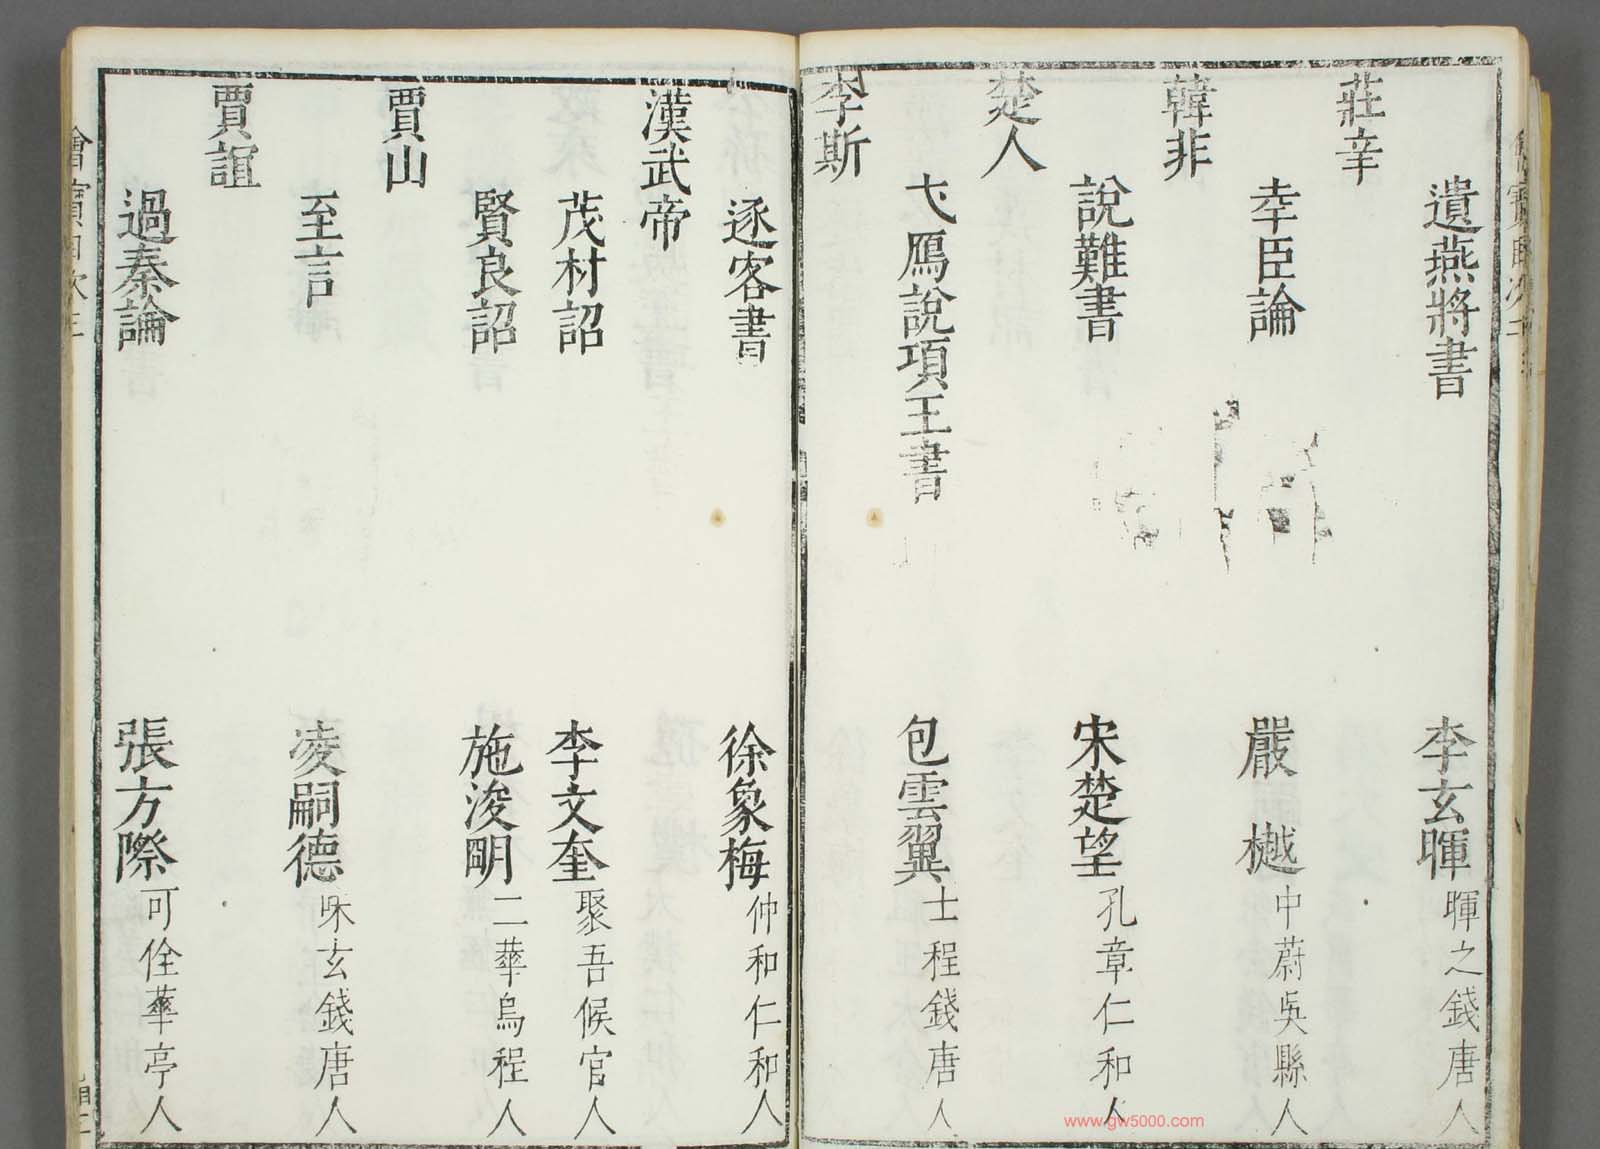 遺燕將書 李玄暉 暉之錢唐人
莊辛
幸臣論 嚴樾 中蔚吳縣人
韓非
說難書 宋楚望 孔章仁和人
楚人
弋鴈說項王書 包雲翼 士程錢唐人
李斯
逐客書 徐象梅 仲和仁和人
漢武帝
茂材詔 李文奎 聚吾候官人
賢良詔 施浚明 二華烏程人
賈山
至言 凌嗣德 玄錢唐人
賈誼
過秦論 張方際 可佺華亭人
www.gw5000.com